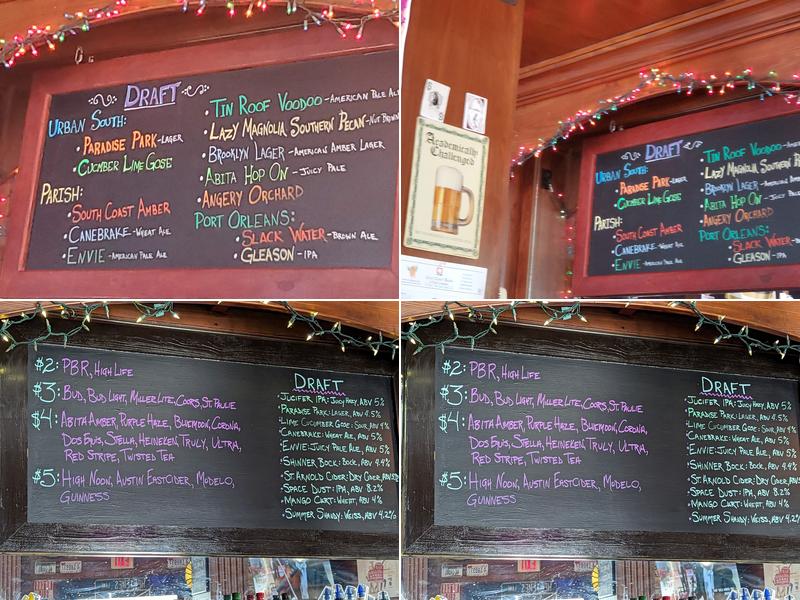 DRAFT
URBAN SOUTH:
• PARADISE PARK-LAGER
• CUCMBER LIME GOSE
PARISH:
• SOUTH COAST AMBER
• CANEBRAKE-WHEAT ALE
• ENVIE-AMERICAN PALE ALE
• TIN ROOF VOODOO-AMERICAN PALE ALE
• LAZY MAGNOLIA SOUTHERN PECAN-NUT BROWN
• BROOKLYN LAGER-AMERICAN AMBER LAGER
• ABITA HOP ON-JUICY PALE
• ANGERY ORCHARD
PORT ORLEANS:
• SLACK WATER-BROWN ALE
• GLEASON-IPA
Academically
Challenged
DRAFT
URBAN SOUTH:
• PARADISE PARK-LAGER
• CUCMBER LIME GOSE
PARISH:
• SOUTH COAST AMBER
• CANEBRAKE-WHEAT ALE
• ENVIE-AMERICAN PALE ALE
• TIN ROOF VOODOO-AMERICAN
• LAZY MAGNOLIA SOUTHERN
• BROOKLYN LAGER-AMERICAN
• ABITA HOP ON-JUICY PALE
• ANGERY ORCHARD
PORT ORLEANS:
• SLACK WATER-
• GLEASON-IPA
$2: PBR, HIGH LIFE
$3: BUD, BUD LIGHT, MILLER LITE, COORS, ST. PAULIE
$4: ABITA AMBER, PURPLE HAZE, BLUEMOON, CORONA,
DOS EQUIS, STELLA, HEINEKEN, TRULY, ULTRA,
RED STRIPE, TWISTED TEA
$5: HIGH NOON, AUSTIN EASTCIDER, MODELO,
GUINNESS
DRAFT
• JUCIFER, IPA: JUICY HAZY, ABV 5%
• PARADISE PARK: LAGER, ABV 4.5%
• LIME CUCUMBER GOSE: SOUR, ABV 4%
• CANEBRAKE: WHEAT ALE, ABV 5%
• ENVIE: JUICY PALE ALE, ABV 5%
• SHINNER BOCK: BOCK, ABV 4.4%
• ST. ARNOLD CIDER: DRY CIDER, ABV 5%
• SPACE DUST: IPA, ABV 8.2%
• MANGO CART: WHEAT, ABV 4%
• SUMMER SHANDY: WEISS, ABV 4.2%
$2: PBR, HIGH LIFE
$3: BUD, BUD LIGHT, MILLER LITE, COORS, ST. PAULIE
$4: ABITA AMBER, PURPLE HAZE, BLUEMOON, CORONA,
DOS EQUIS, STELLA, HEINEKEN, TRULY, ULTRA,
RED STRIPE, TWISTED TEA
$5: HIGH NOON, AUSTIN EASTCIDER, MODELO,
GUINNESS
DRAFT
• JUCIFER, IPA: JUICY HAZY, ABV 5%
• PARADISE PARK: LAGER, ABV 4.5%
• LIME CUCUMBER GOSE: SOUR, ABV 4%
• CANEBRAKE: WHEAT ALE, ABV 5%
• ENVIE: JUICY PALE ALE, ABV 5%
• SHINNER BOCK: BOCK, ABV 4.4%
• ST. ARNOLD CIDER: DRY CIDER, ABV 5%
• SPACE DUST: IPA, ABV 8.2%
• MANGO CART: WHEAT, ABV 4%
• SUMMER SHANDY: WEISS, ABV 4.2%